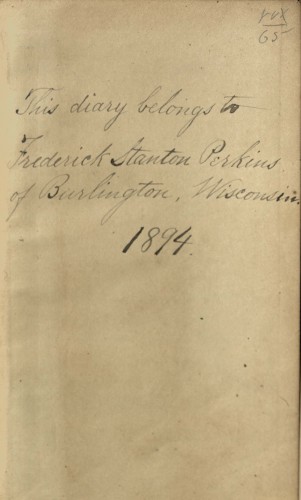 65
This diary belongs to
Frederick Stanton Perkins
of Burlington, Wisconsin.
1894.